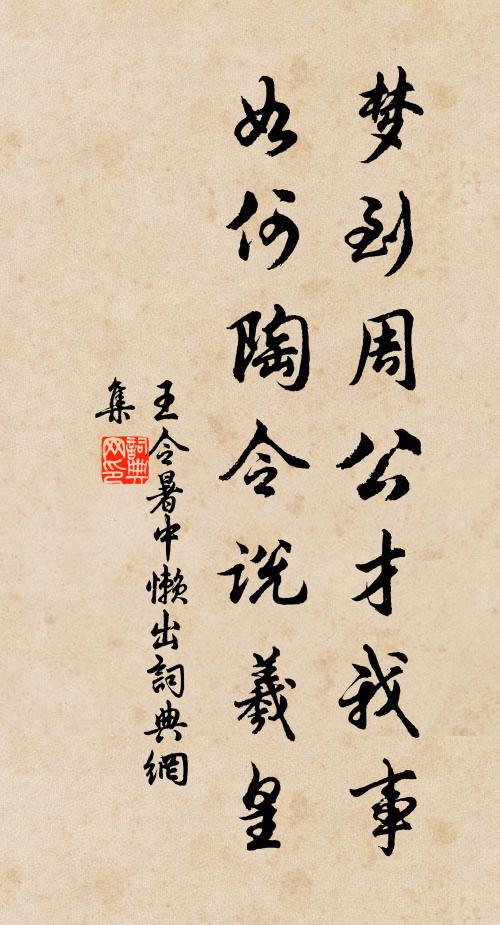 梦到周公才我事
如何陶令说羲皇
王令暑中懒出詞典網
集
詞典
网印